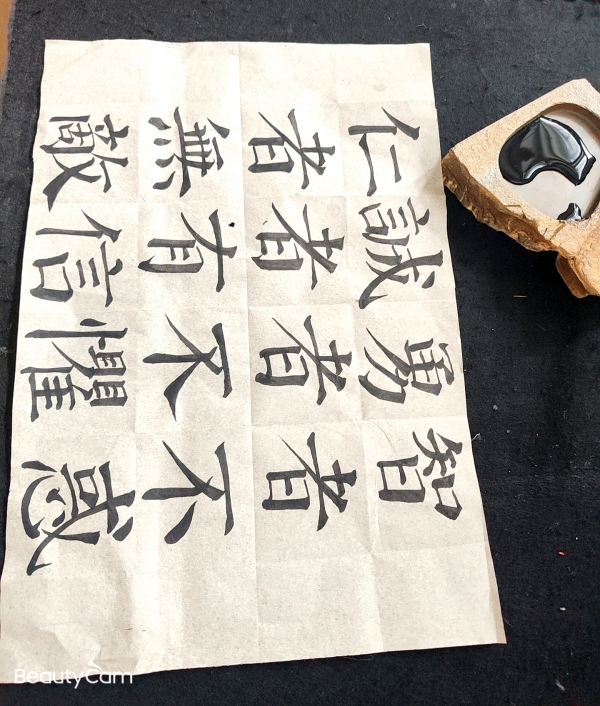 智者不惑
勇者不懼
誠者有信
仁者無敵
BeautyCam